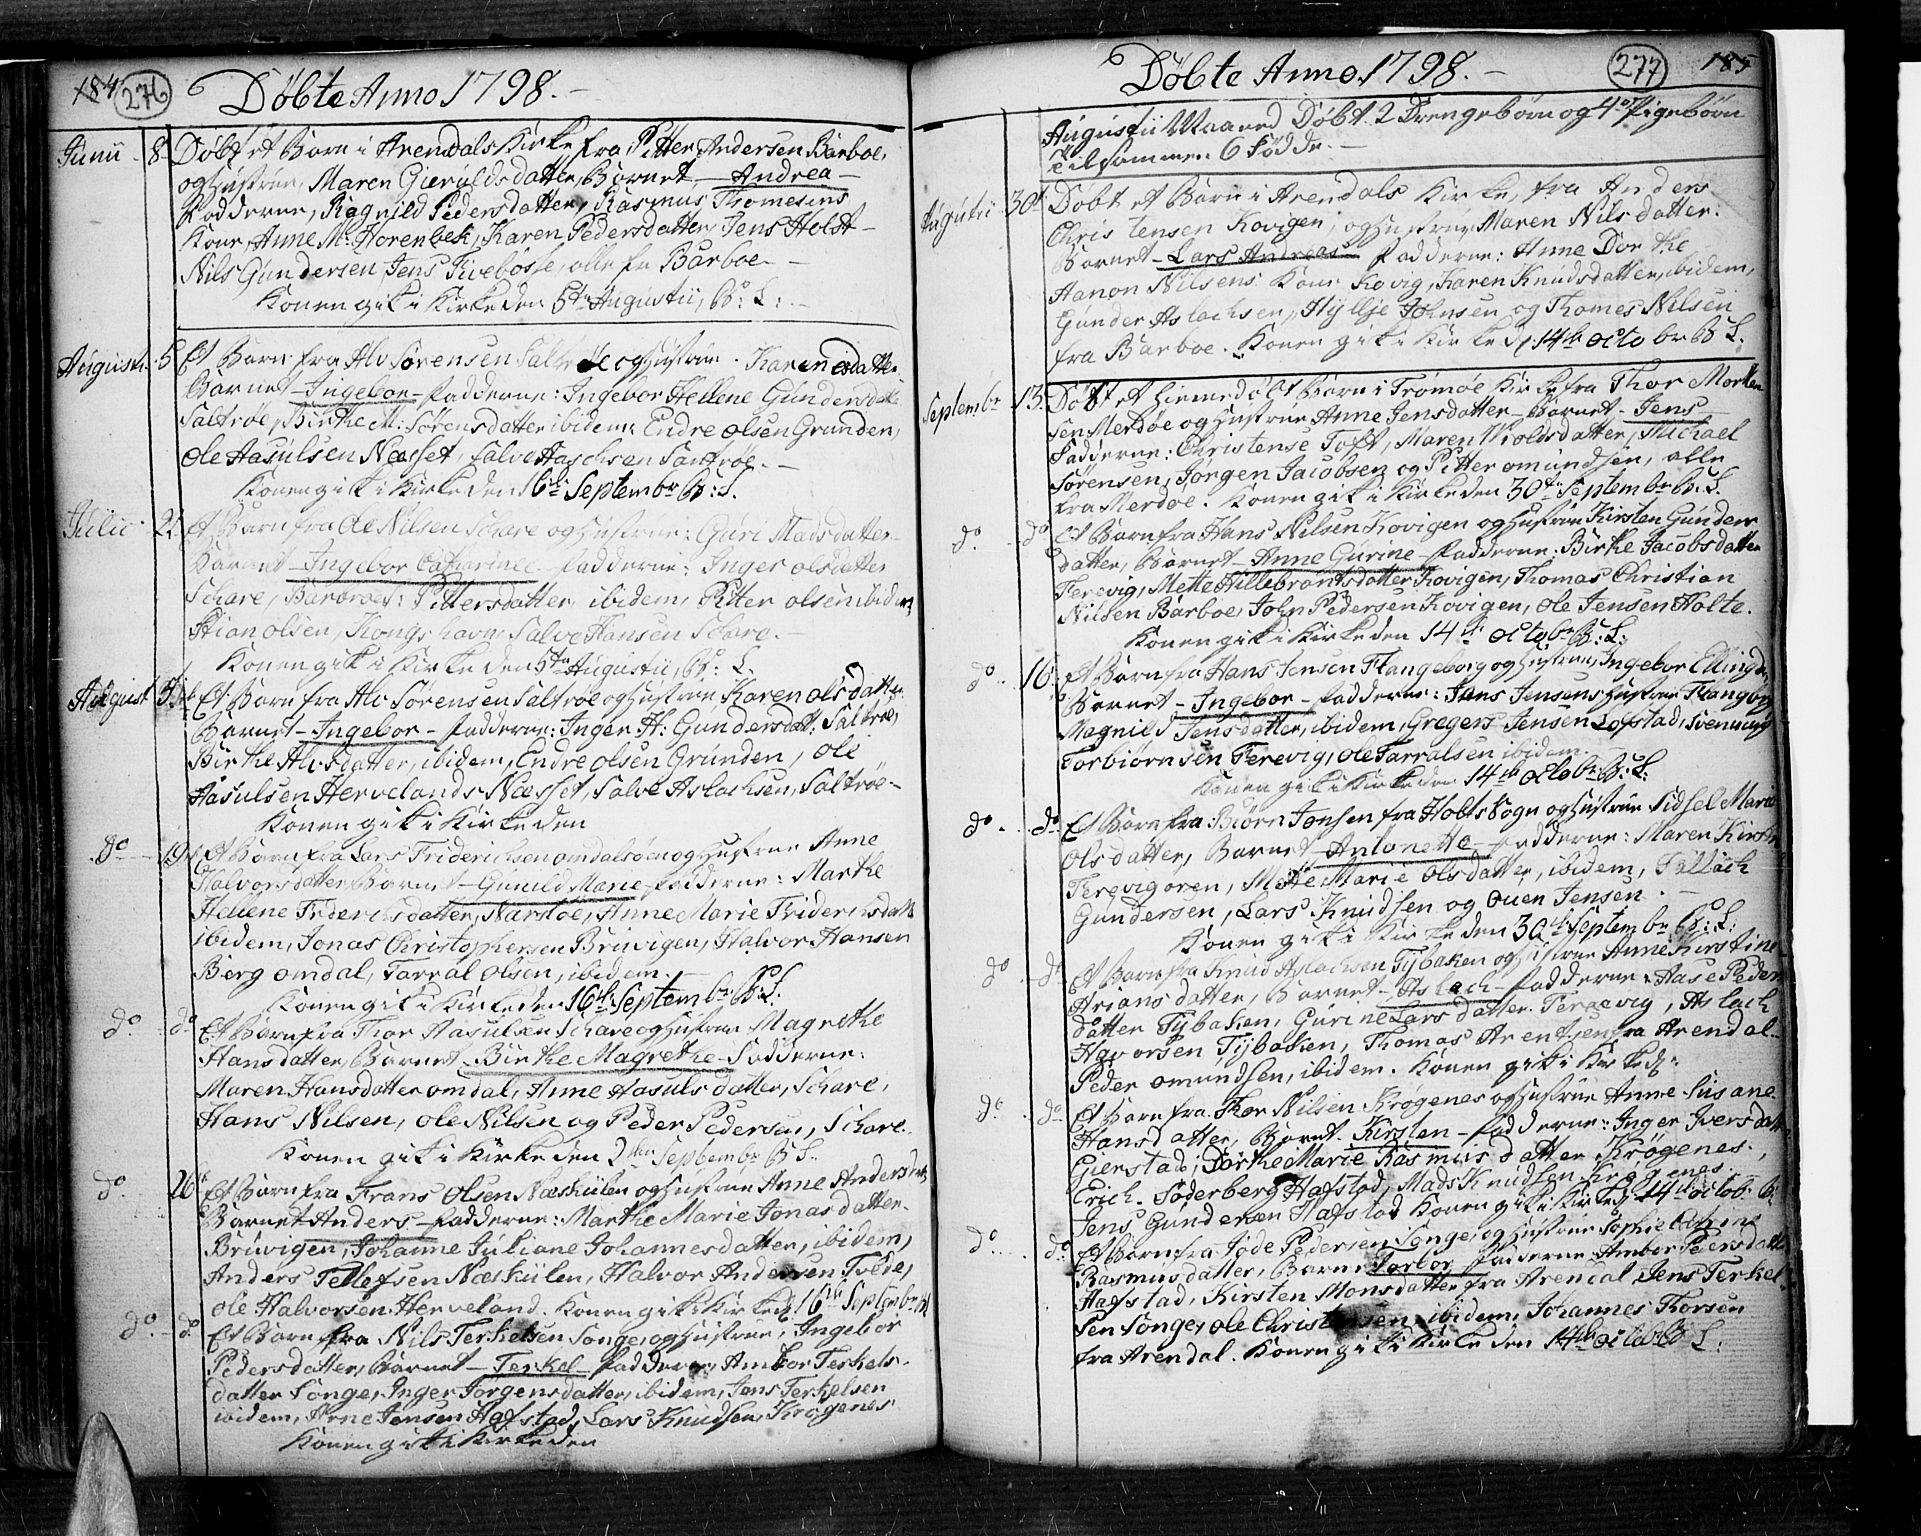 184 276 Döbte Anno 1798.
Junii 8 Döbt et Barn i Arendals Kirke fra Pitter Andersen Barboe,
og hustrue, Maren Gieruldsdatter, Barnet, Andrea
Fadderne, Ragnild Pedersdatter, Rasmus Thomesens
Kone, Anne M: Horenbek, Karen Pedersdatter, Jens Holst
Nils Gundersen, Jens Tivebosse, alle fra Barboe.
Konen gik i Kirke den 5te Augustii, B: L:
Augustii 5 Et Barn fra Alv Sörensen Saltröe og hustrue. Karen olsdatter
Barnet Ingebor Fadderne: Ingebor Hellene Gundersdatter
Saltröe, Birthe M: Sörensdatter ibidem, Endre olsen Grunden,
Ole Aasulsen Næsset, Salve Aaschsen Saltröe.
Konen gik i Kirke den 16de Septembr B: L.
Julii 22 Et Barn fra Ole Nilsen Schare og hustrue: Guri Madsdatter
Barnet Ingebor Catharinee Fadderne: Inger olsdatter
Schare, Barbroe: Pittersdatter ibidem, Pitter olsen ibidem
Stian olsen, Kongshavn, Salve Hansen Schare.
Konen gik i Kirke den 5te Augustii, B: L.
August 5te Et Barn fra Alv Sörensen Saltröe og hustrue Karen olsdatter
Barnet Ingebor Fadderne: Inger H: Gundersdatt: Saltröe,
Birthe Alvsdatter, ibidem, Endre olsen Grunden, ole
Aasulsen Hervelands Næsset, Salve Aslachsen, Saltröe
Konen gik i Kirke den
do 19 Et Barn fra Lars Friderichsen omdalsöen og hustrue Anne
Halvorsdatter, Barnet Gunild Marie, Fadderne: Marthe
Hellene Friderichsdatter, Narstöe, Anne Marie Friderichsdatt
ibidem, Jonas Christophersen Bruvigen, Halvor Hansen
Berg omdal, Tarral olsen, ibidem.
Konen gik i Kirke den 16de Septembr B: L:
do do Et Barn fra Thor Aasulsen Schare og hustrue Magrethe
Hansdatter, Barnet Birthe Magrethe Fadderne:
Maren Hansdatter omdal, Anne Aasulsdatter, Schare,
Hans Nilsen, ole Nilsen og Peder Pedersen, Schare.
Konen gik i Kirke den 2den Septembr B L.
do 26 Et Barn fra Frans olsen Næskilen og hustrue Anne Andersdatt
Barnet Anders Fadderne: Marthe Marie Jonasdatter
Bruvigen, Johanne Juliane Johannesdatter, ibidem,
Anders Tellefsen Næskilen, Halvor Andersen Tvede,
ole Halvorsen Herveland. Konen gik i Kirke d: 16de Septembr
do do Et Barn fra Nils Terkelsen Songe, og hustrue, Ingebor
Pedersdatter, Barnet Terkel Fadderne, Ambor Terkels-
datter Songe, Inger Jörgensdatter, ibidem, Jens Terkelsen
ibidem, Arne Jensen Hafstad, Lars Knudsen, Krögenes
Konen gik i Kirke den
Döbte Anno 1798. 277 185
Augustii Maaned Döbt 2 Drengebörn og 4 Pigebörn
Tilsammen 6 Födde.
Augustii 30 Döbt et Barn i Arendals Kirke, fra Anders
Christensen Kovigen, og hustrue Maren Nilsdatter.
Barnet Lars Andreas Fadderne: Anne Dorthe
Hanon Nilsens Kone Kovig, Karen Knudsdatter, ibidem,
Gunder Aslachsen, Hyllje Johnsen og Thomes Nilsen
fra Barboe. Konen gik i Kirke d: 14de octobr B L.
Septembr 13 Döbt et hiemedöbt Barn i Tromöe Kirke fra Thor Morten
sen Merdöe og hustrue Anne Jensdatter Barnet Jens
Fadderne: Christense Toft, Maren Nioldsdatter, Michael
Sörensen, Jörgen Jacobsen og Pitter omundsen, alle
fra Merdöe. Konen gik i Kirke den 30de Septembr B. L.
do do Et Barn fra Hans Nilsen Kovigen og hustrue Kirsten Gunders
datter, Barnet Anne Gurine Fadderne: Birthe Jacobsdatter
Ferevig, Mette Hillebrantsdatter Kovigen, Thomas Christian
Nilsen Barboe, John Pedersen Kovigen, ole Jensen Holte.
Konen gik i Kirke den 14de octobr B: L:
do 16 Et Barn fra Hans Jensen Flangeborg og hustrue, Ingebor Ellingsd:
Barnet Ingebor Fadderne: Jens Jensens hustrue Flangborg
Magnild Jensdatter, ibidem, Gregers Jensen Lofstad, Svennung
Torbiörnsen Ferevig, ole Tarralsen ibidem.
Konen gik i Kirke den 14de octobr B: L:
do do Et Barn fra Biörn Jonsen fra Holts Sogn og hustrue Sidsel Marie
olsdatter, Barnet Antonette Fadderne: Maren Kirstine
Ferevigoren, Mette Marie olsdatter, ibidem, Tallach
Gundersen, Lars Knudsen og Ouen Jensen.
Konen gik i Kirke den 30de Septembr B: L:
do do Et Barn fra Knud Aslachsen Tybaken og hustrue Anne Kirstine
Arians datter, Barnet Aslach Fadderne: Aase Peders
datter Tybaken, Gurine Larsdatter. Feraevig, Aslach
Havorsen Tybaken, Thomas Arentsen fra Arendal
Peder omundsen, ibidem. Konen gik i Kirke d:
do do Et Barn fra Thor Nilsen Krögenes og hustrue Anne Susane
Hansdatter, Barnet Kirsten Fadderne: Inger Iversdatter
Gierstad, Dorthe Marie Rasmusdatter Krögenes.
Erich Söderberg Hafstad, Mads Knudsen Krögenes
Jens Gundersen Hafstad Konen gik i Kirke d: 14de octob: B:
do do Et Barn fra Jöde Pedersen Songe, og hustrue Sophie
Rasmusdatter, Barnet Torbor, Fadderne Ambor Pedersdatter
Hafstad, Kirsten Monsdatter fra Arendal Jens Terkel
sen Songe, ole Christensen, ibidem, Johannes Thorsen
fra Arendal. Konen gik i Kirke den 14de octob B L: